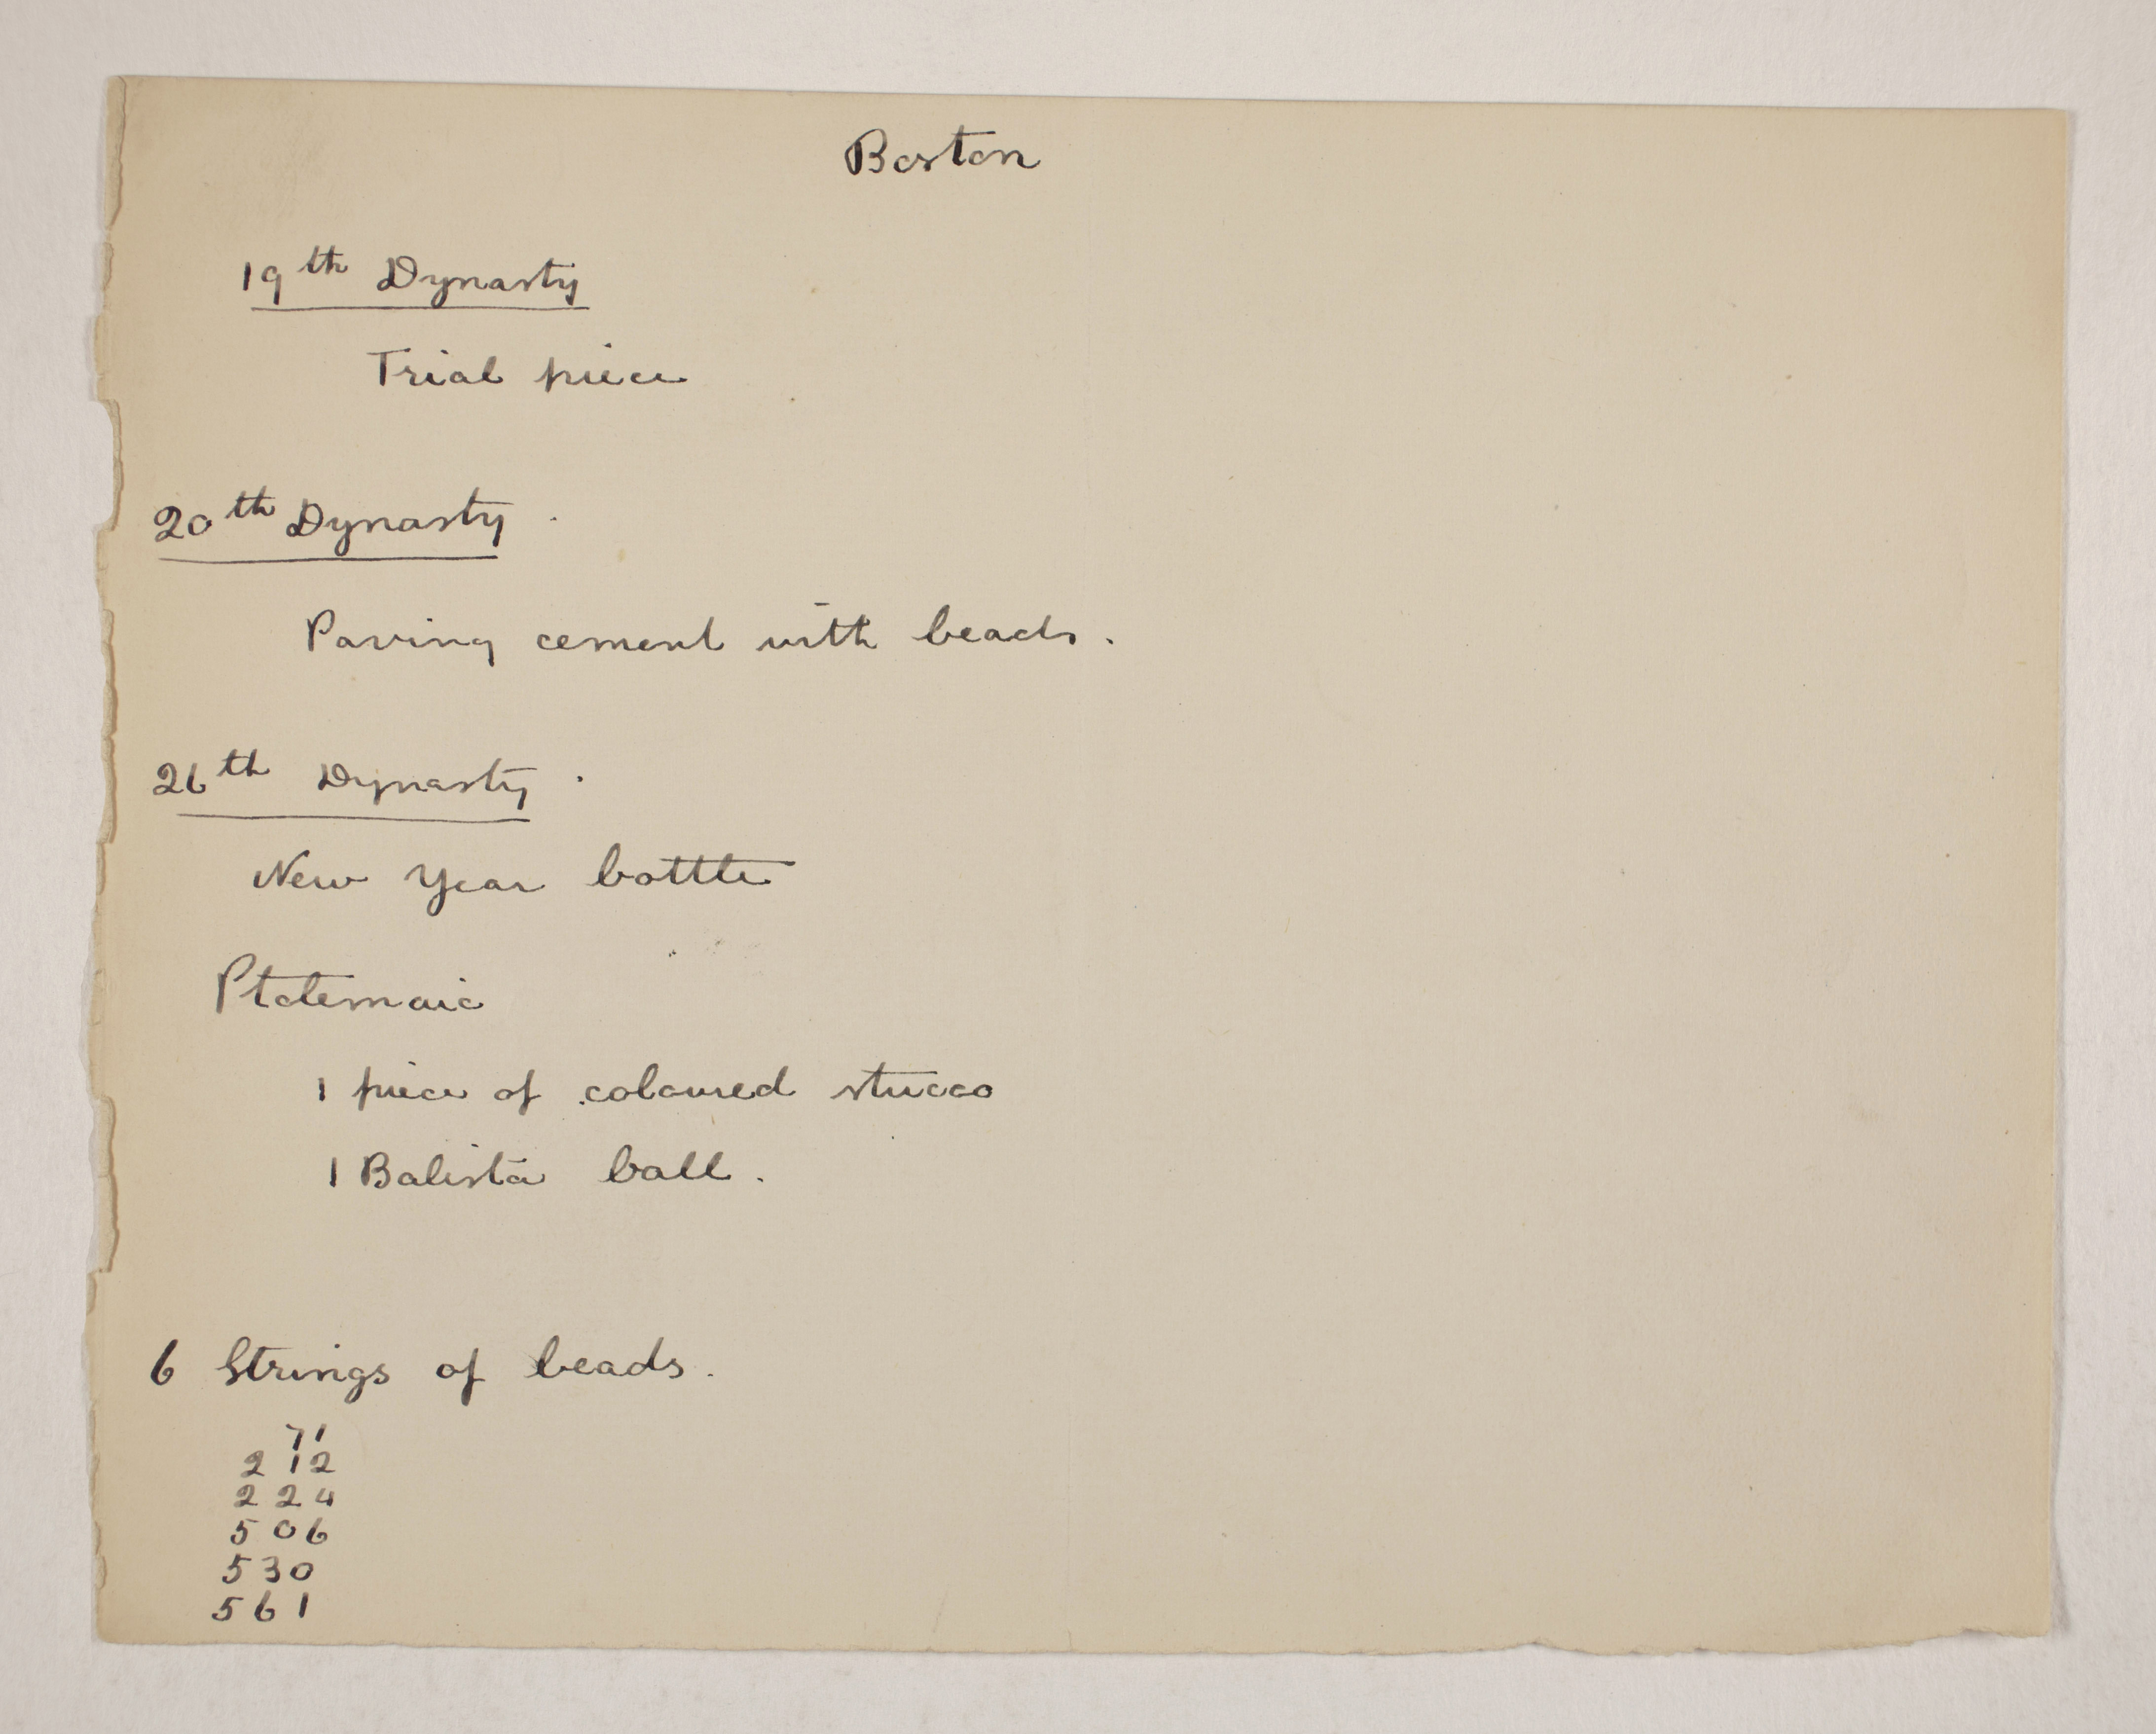 Boston
19th Dynasty
Trial piece
20th Dynasty.
Paving cement with beads.
26th Dynasty.
New Year bottle
Ptolemaic
1 piece of coloured stucco
1 Balista ball.
6 Strings of beads.
71
212
224
506
530
561